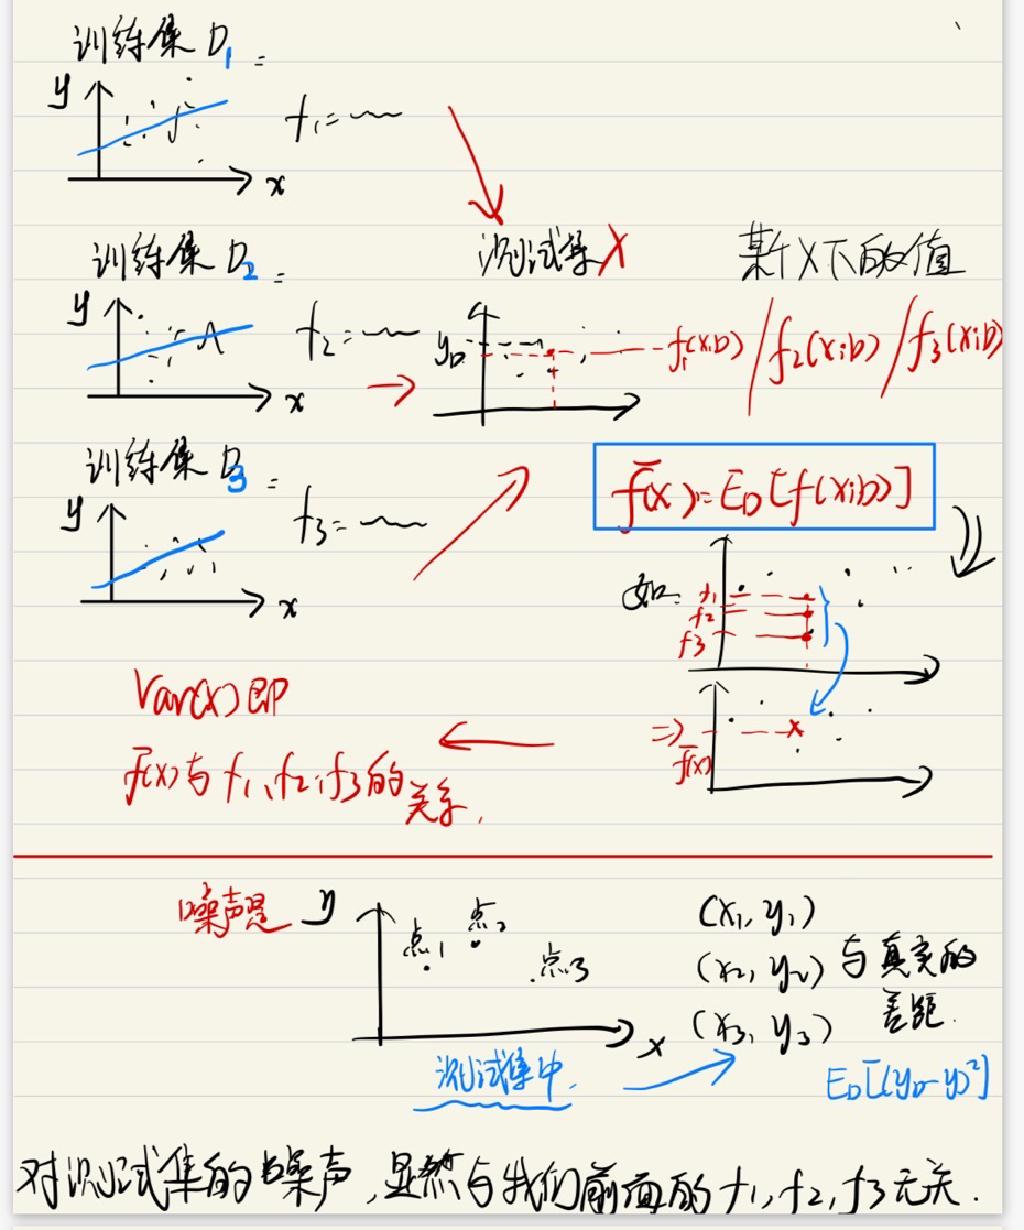 训练集 D1 =
y
f1 =
x
训练集 D2 =
测试集X
某个X下的值
y
f2 =
yD
f1(x;D) / f2(x;D) / f3(x;D)
x
训练集 D3 =
f̄(x) = ED[f(x;D)]
y
f3 =
x
如:
f1
f2
f3
Var(x) 即
⇒ f̄(x)
x
f̄(x)与 f1、f2、f3的关系.
噪声是
y
点1
点2
点3
x
(x1, y1)
(x2, y2) 与真实的
差距.
(x3, y3)
测试集中.
ED[(yD-y)²]
对测试集的噪声,显然与我们前面的 f1,f2,f3无关.